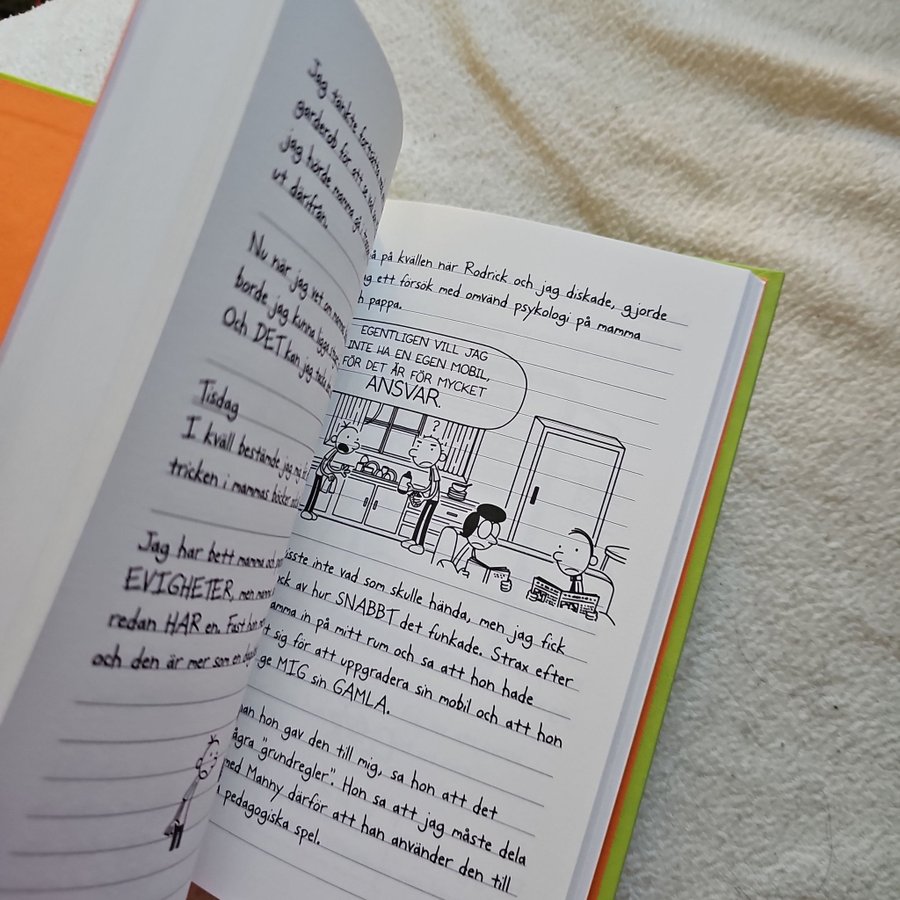 Jag tänkte fortsätta
garderob för att se
jag hörde mamma gå i
ut därifrån.
Nu när jag vet om mammas
borde jag kunna ligga
Och DET kan jag
Tisdag
I kväll bestämde jag mig
tricken i mammas böcker
Jag har bett mamma och
EVIGHETER, men
redan HAR en. Fast
och den är mer som en
på kvällen när Rodrick och jag diskade, gjorde
ett försök med omvänd psykologi på mamma
pappa.
EGENTLIGEN VILL JAG
INTE HA EN EGEN MOBIL,
FÖR DET ÄR FÖR MYCKET
ANSVAR.
?
inte vad som skulle hända, men jag fick
av hur SNABBT det funkade. Strax efter
in på mitt rum och sa att hon hade
sig för att uppgradera sin mobil och att hon
MIG sin GAMLA.
hon gav den till mig, sa hon att det
"grundregler". Hon sa att jag måste dela
med Manny därför att han använder den till
pedagogiska spel.